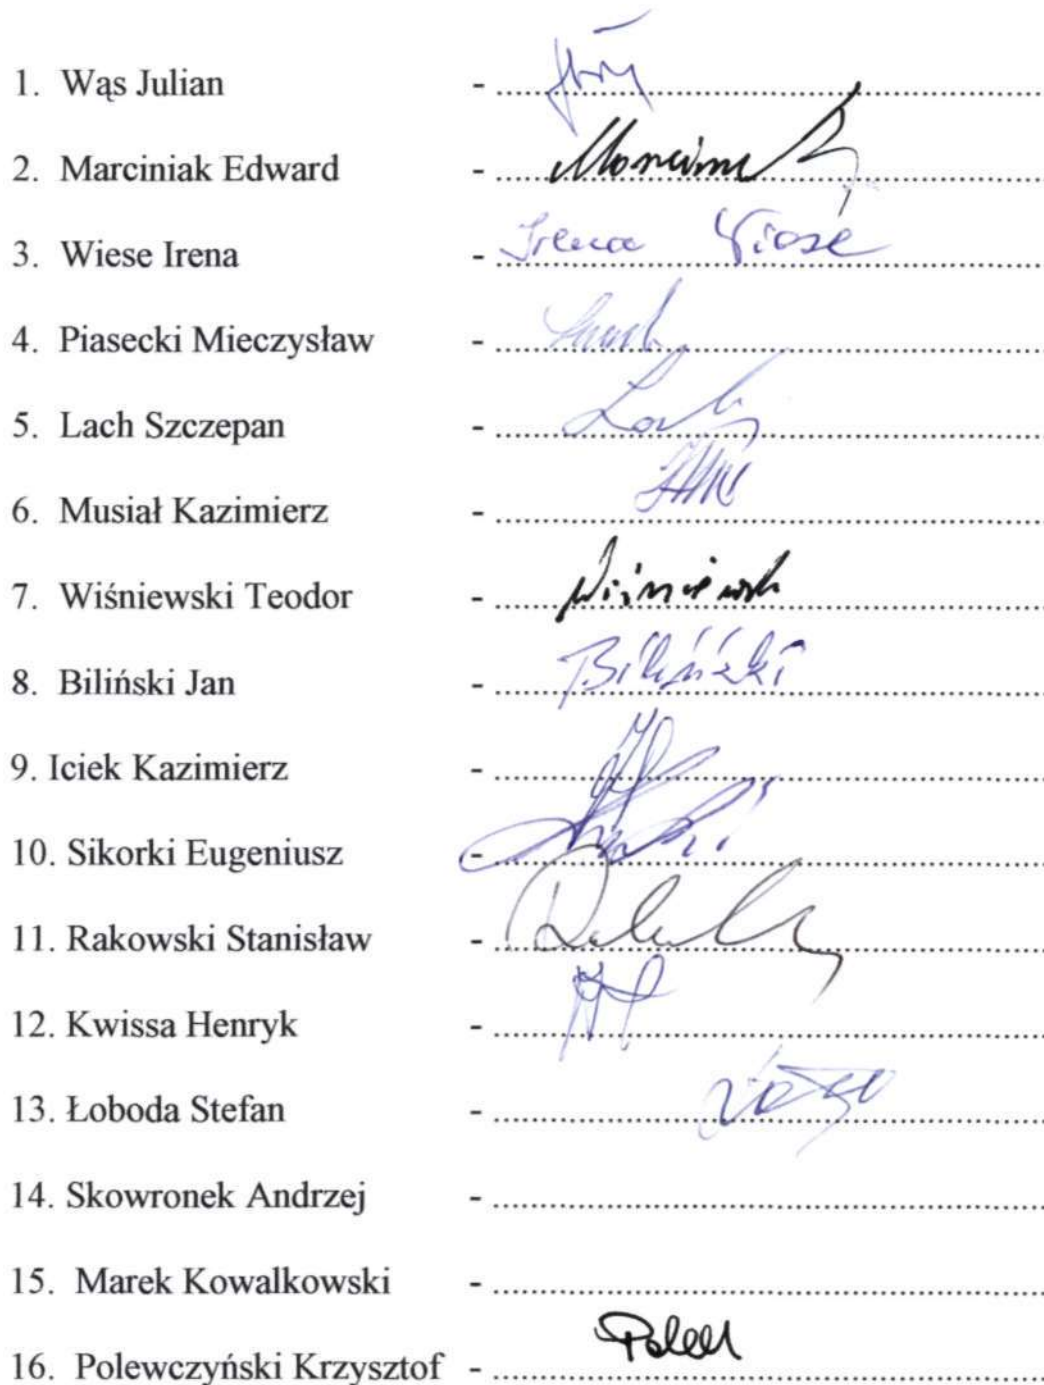 1. Wąs Julian - ........................
2. Marciniak Edward - ........................
3. Wiese Irena - ........................ Irena Wiese
4. Piasecki Mieczysław - ........................
5. Lach Szczepan - ........................
6. Musiał Kazimierz - ........................
7. Wiśniewski Teodor - ........................
8. Biliński Jan - ........................ Biliński
9. Iciek Kazimierz - ........................
10. Sikorki Eugeniusz - ........................
11. Rakowski Stanisław - ........................
12. Kwissa Henryk - ........................
13. Łoboda Stefan - ........................
14. Skowronek Andrzej - ........................
15. Marek Kowalkowski - ........................
16. Polewczyński Krzysztof - ........................